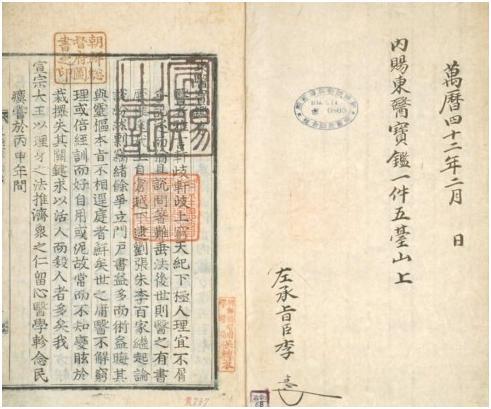 萬曆四十二年二月 日
內賜東醫寶鑑一件五臺山上
左承旨臣李
朝鮮總督府圖書之印
宣賜之記
軒岐軒岐上窮天紀下極人理宜不屑
而猶且說問著難垂法後世則醫之有書
上自倉越下逮劉張朱李百家繼起論
剽竊緒餘爭立門戶書益多而術益晦其
與靈樞本旨不相逕庭者鮮矣世之庸醫不解窮
理或倍經訓而好自用或泥故常而不知變眩於
裁擇失其關鍵求以活人而殺人者多矣我
宣宗大王以理身之法推濟衆之仁留心醫學軫念民
瘼嘗於丙申年間